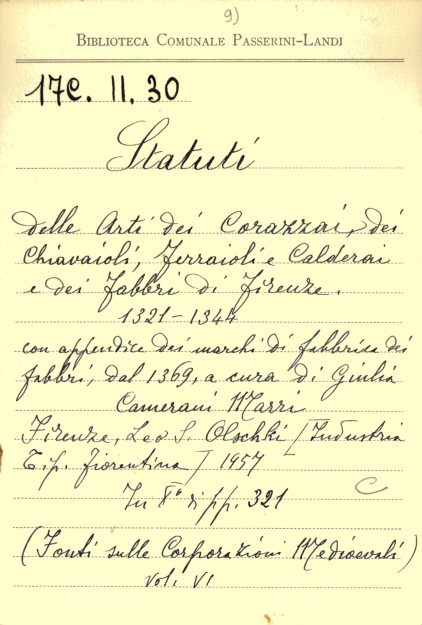 9)
BIBLIOTECA COMUNALE PASSERINI-LANDI
17C. II. 30
Statuti
delle Arti dei Corazzai, dei
Chiavaioli, Ferraioli e Calderai
e dei Fabbri di Firenze.
1321-1344
con appendice dei marchi di fabbrica dei
fabbri, dal 1369, a cura di Giulia
Camerani Marri
Firenze, Leo S. Olschki [Industria
Tip. Fiorentina] 1957
In 8° di pp. 321
C
(Fonti sulle Corporazioni Medioevali)
vol. VI